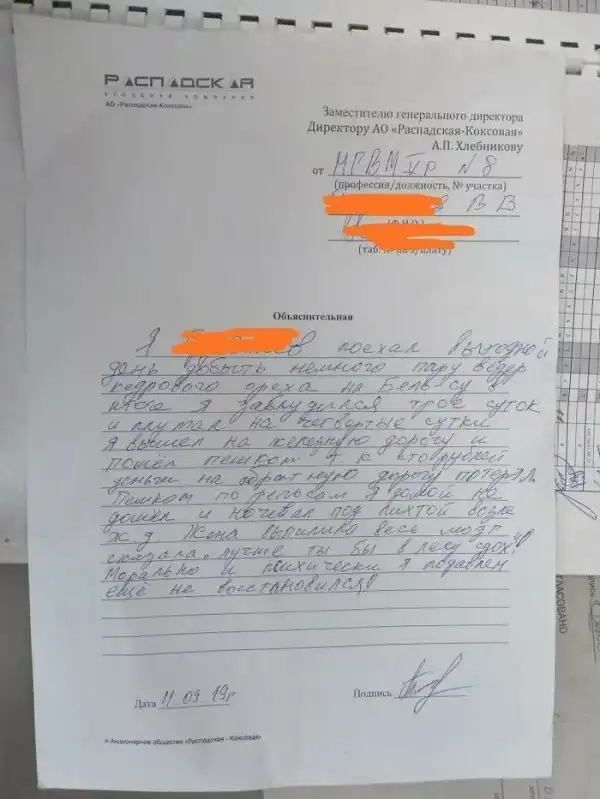 РАСПАДСКАЯ
УГОЛЬНАЯ КОМПАНИЯ
АО «Распадская-Коксовая»
Заместителю генерального директора
Директору АО «Распадская-Коксовая»
А.П. Хлебникову
от МГВМ Vр N 8
(профессия/должность, № участка)
В В
(Ф.И.О.)
(таб. № по з/плату)
Объяснительная
Я поехал выходной
день добыть немного пару ведер
кедрового ореха на Бельсу в
итоге я заблудился трое суток
и плутал на четвертые сутки
я вышел на железную дорогу и
пошел пешком к
деньги на обратную дорогу потерял.
Пешком по рельсам я домой не
дошел и ночевал под пихтой возле
ж д. Жена выпилила весь мозг
сказала „лучше ты бы в лесу сдох"
Морально и психически я подавлен
ещё не восстановился!
Дата 11.09.19г
Подпись
Акционерное общество «Распадская - Коксовая»
СОГЛАСОВАНО